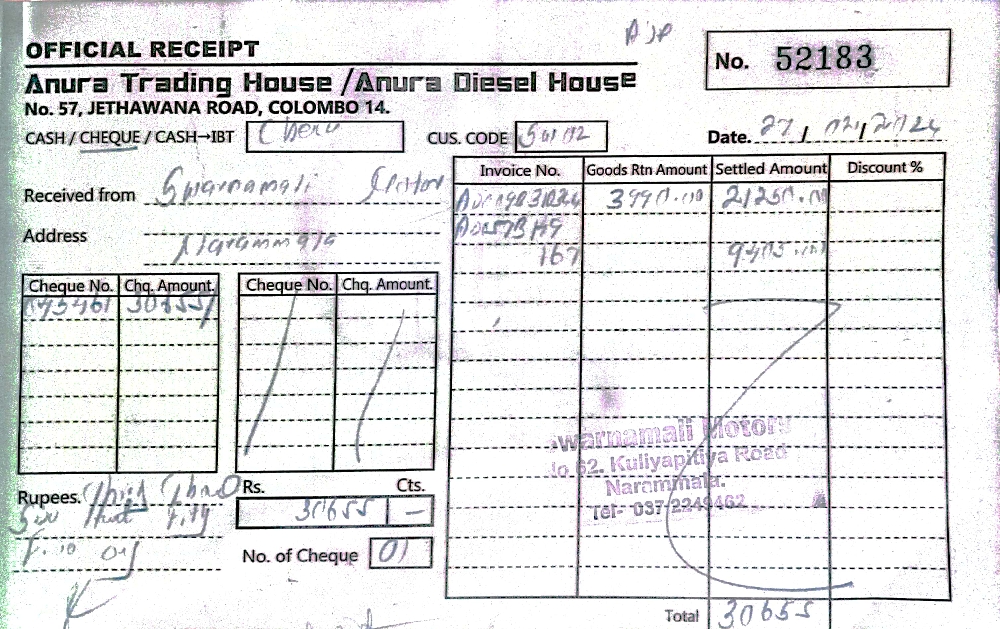 OFFICIAL RECEIPT
No. 52183
Anura Trading House / Anura Diesel House
No. 57, JETHAWANA ROAD, COLOMBO 14.
CASH / CHEQUE / CASH→IBT CUS. CODE
Date. 27 / 02 / 2024
Received from Swarnamali
Address Narammala
Invoice No. Goods Rtn Amount Settled Amount Discount %
3990.00 21250.00
167 9405.00
Cheque No. Chq. Amount. Cheque No. Chq. Amount.
30655/
Swarnamali Motors
No 62. Kuliyapitiya Road
Narammala.
Tel- 037-2249462
Rupees. Rs. Cts.
30655 —
No. of Cheque 01
Total 30655